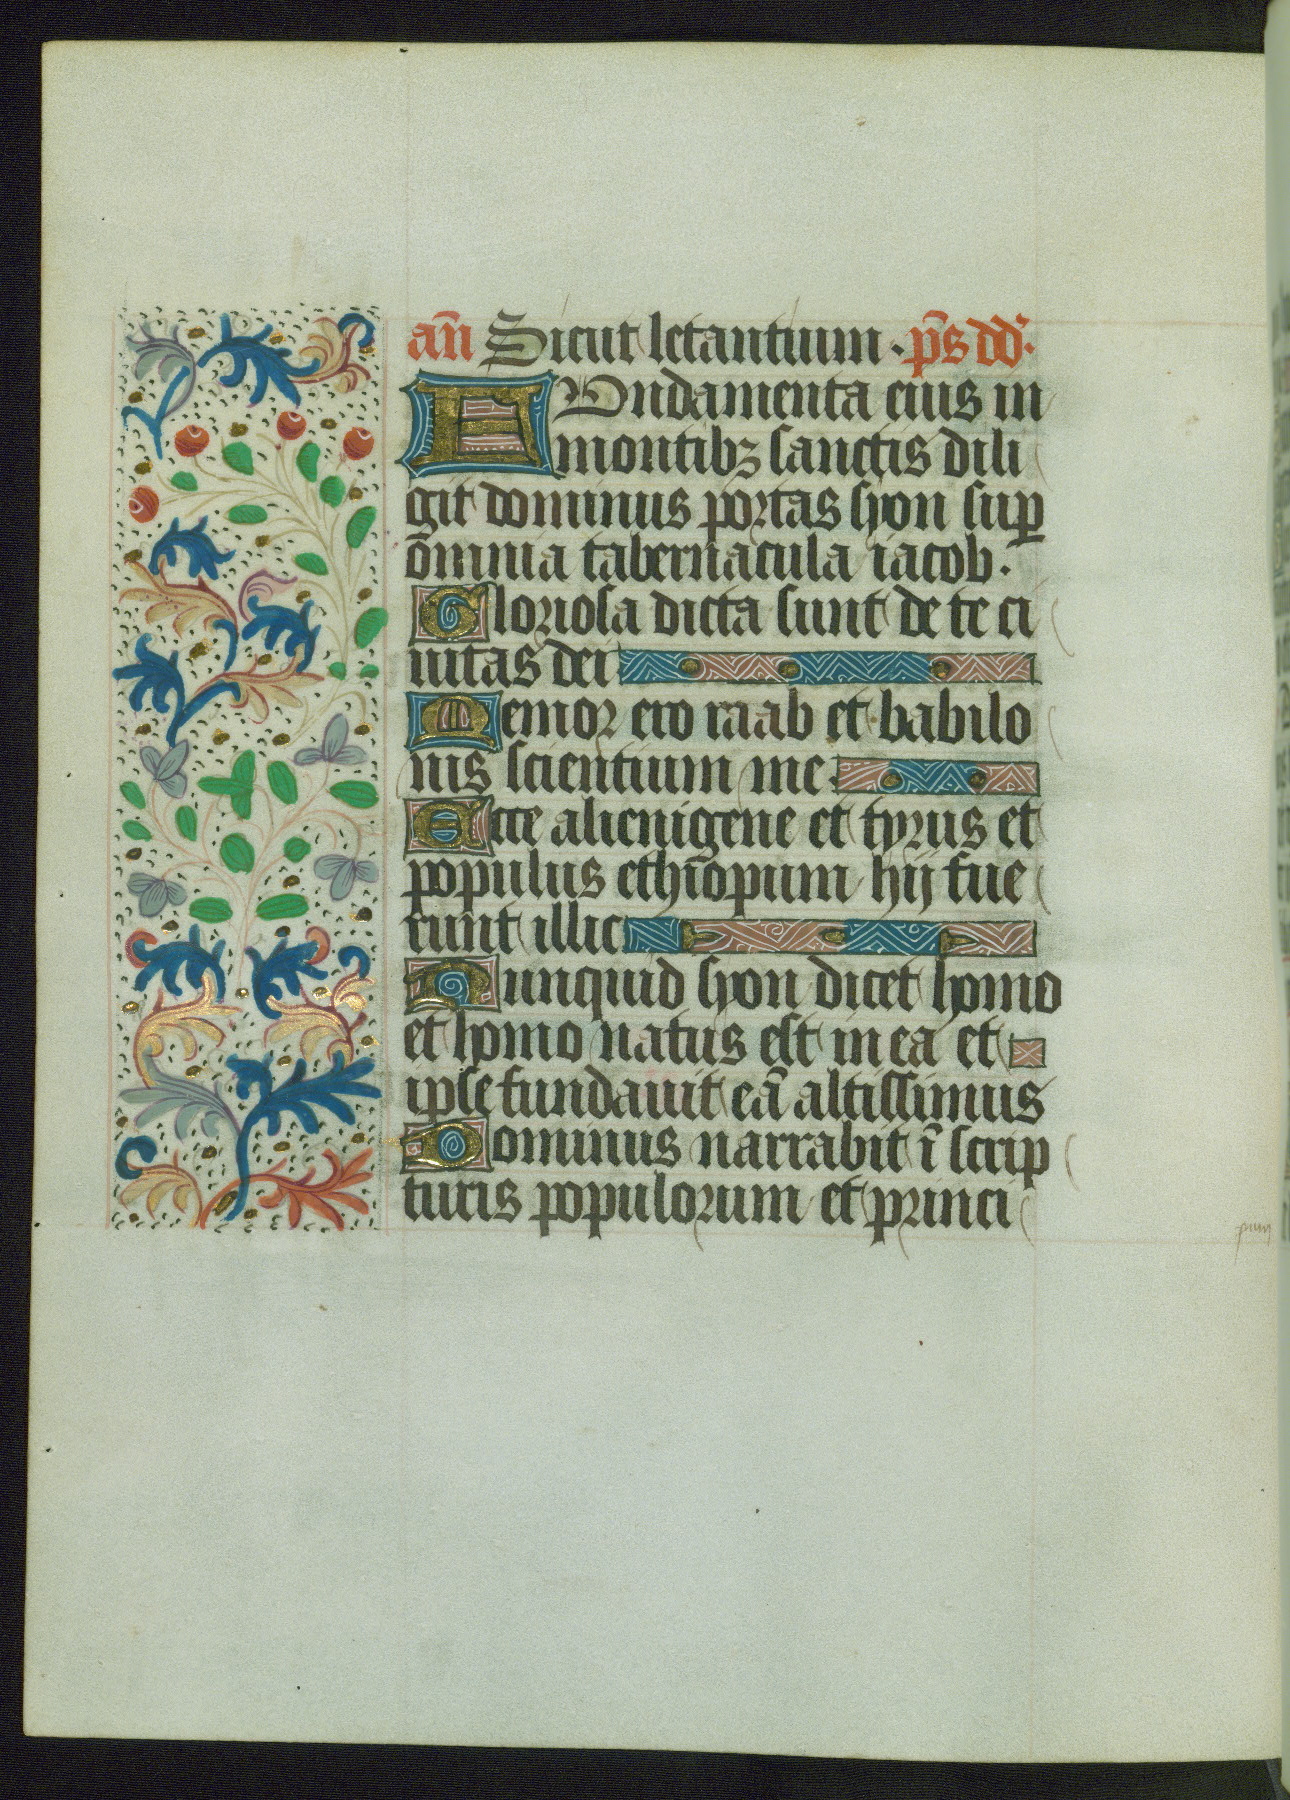 an̄ Sicut letantium · p̄s dd̄·
FUndamenta eius in
montibꝫ sanctis dili
git dominus portas syon suꝑ
om̄nia tabernacula iacob·
Gloriosa dicta sunt de te ci
uitas dei
Memor ero raab et babilo
nis scientium me·
Ecce alienigene et tyrus et
populus ethiōpum hij fue
runt illic
Nunquid syon dicet homo
et homo natus est in ea et
ipse fundauit eā altissimus
Dominus narrabit ī scrip
turis populorum et princi